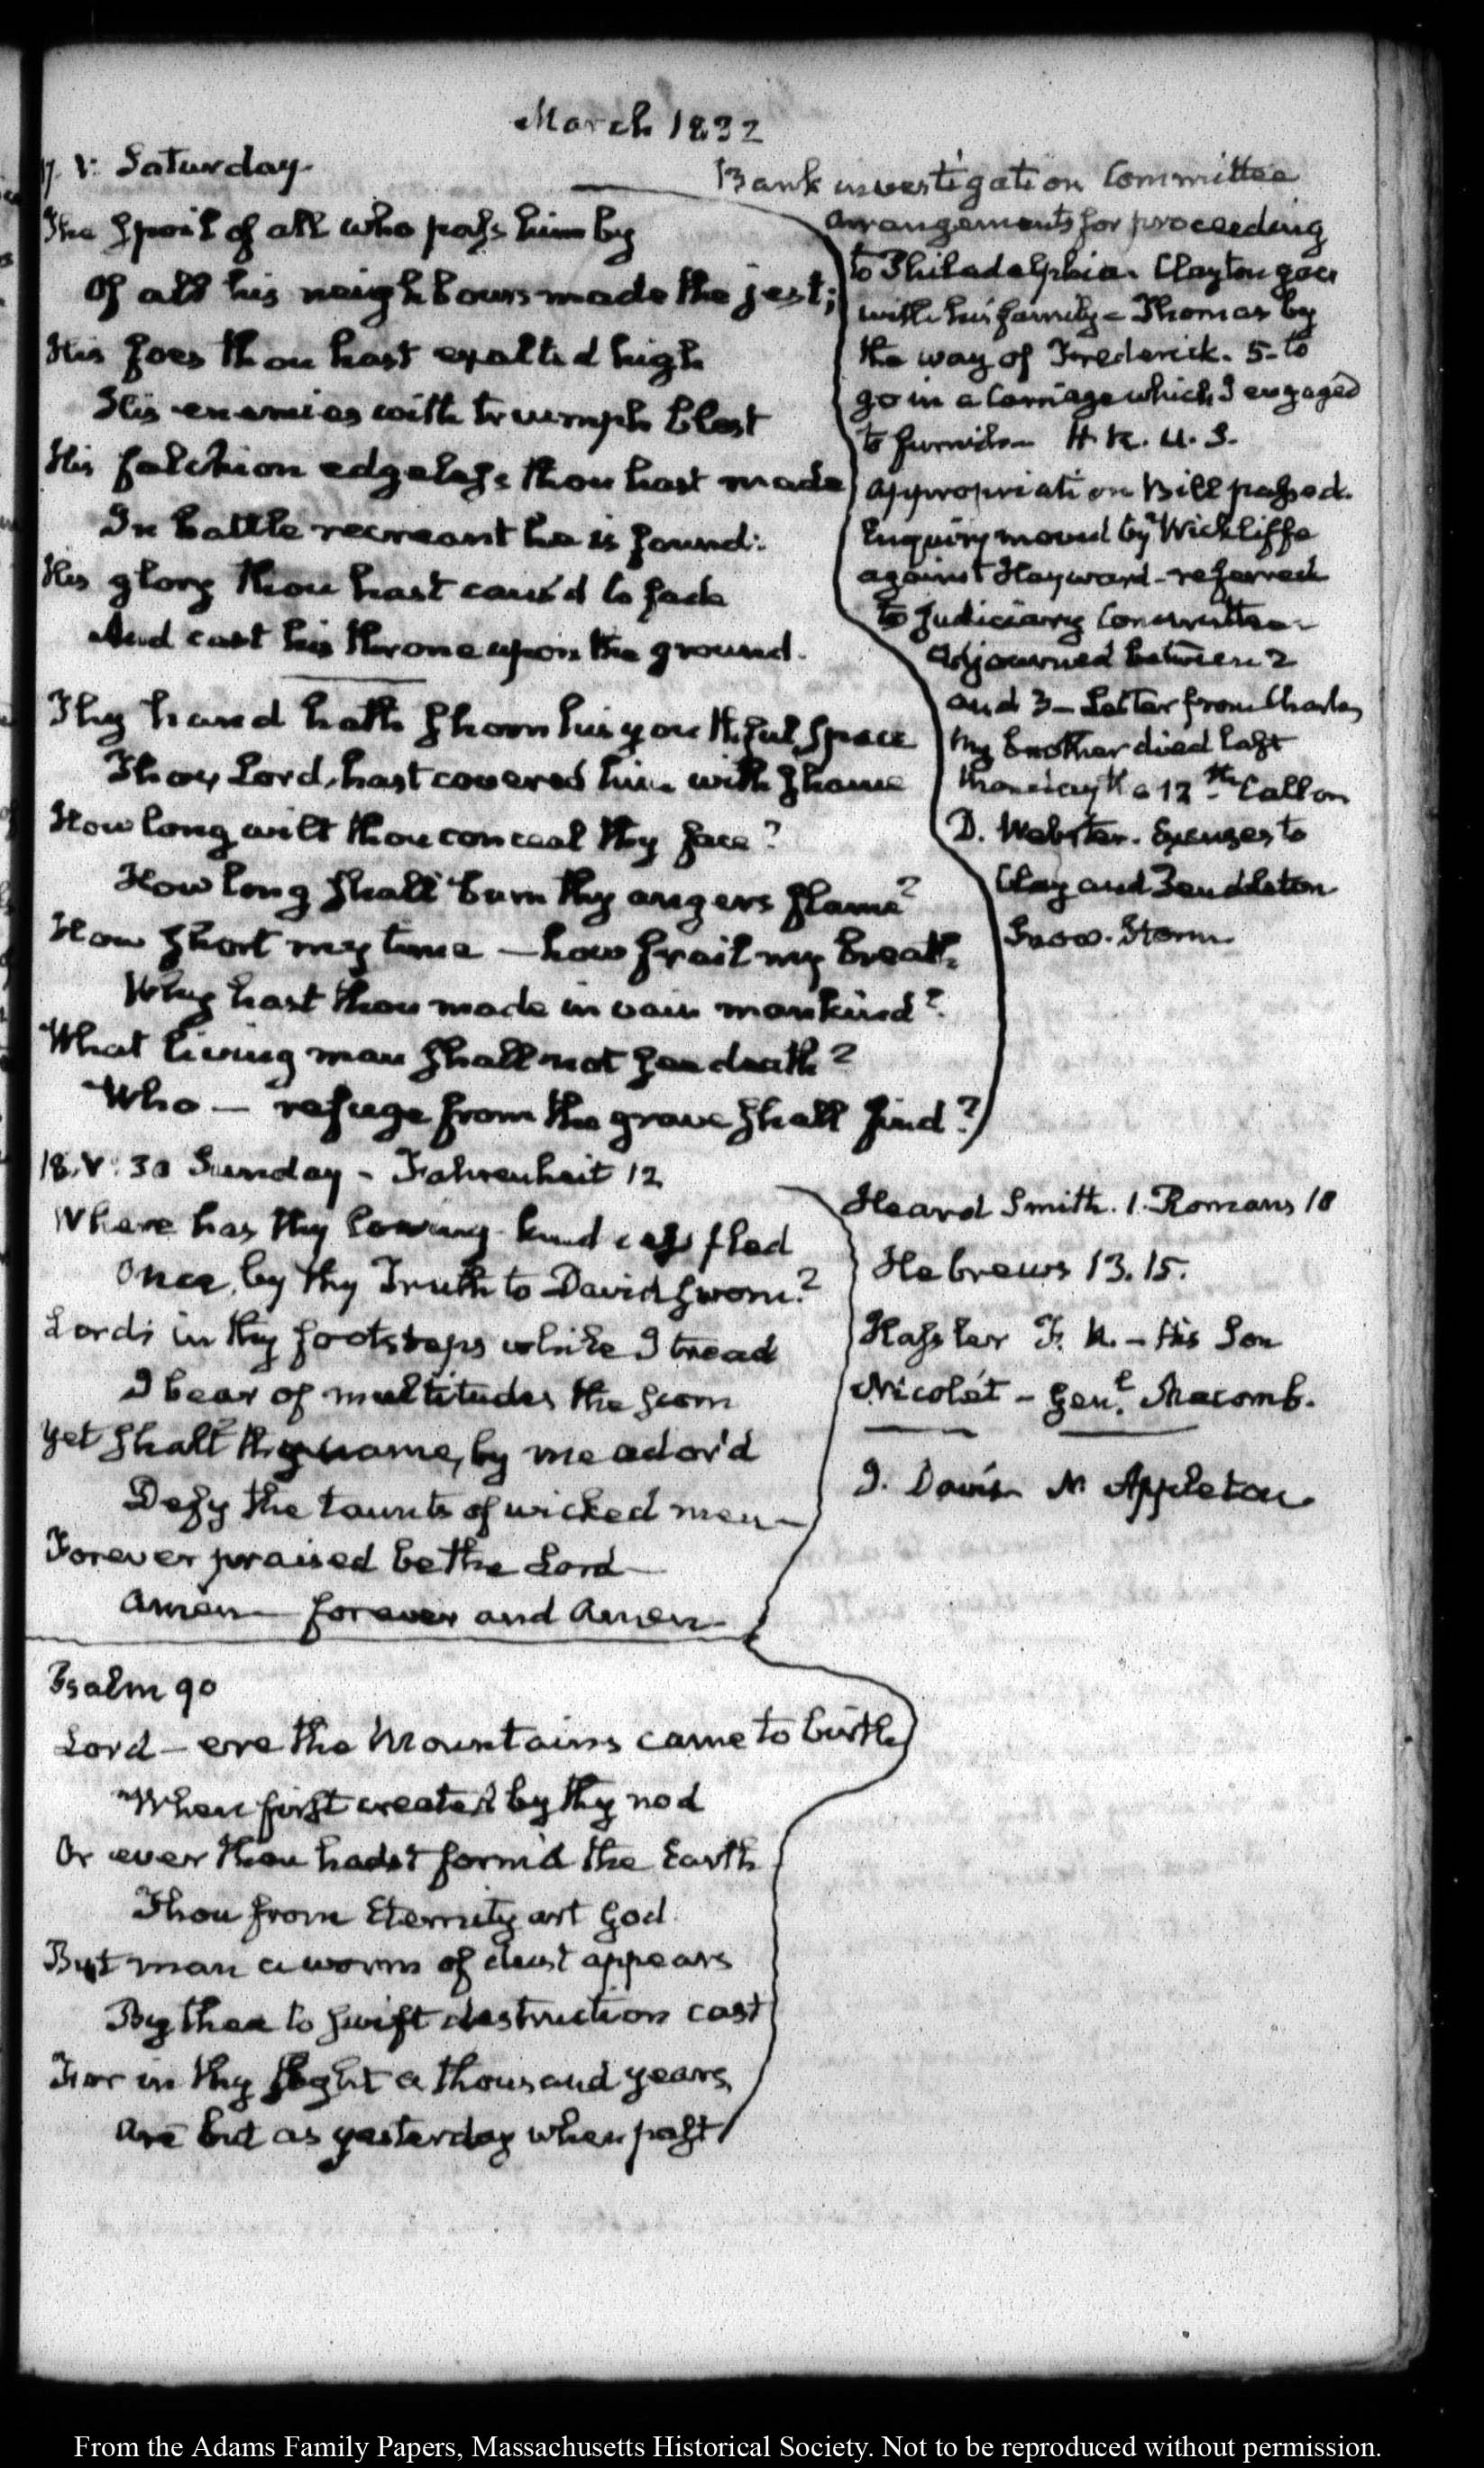 March 1832
17. V: Saturday.
The Spoil of all who pass him by
Of all his neighbours made the jest;
His foes thou hast exalted high
His enemies with triumph blest
His falchion edgeless thou hast made
In battle recreant he is found:
His glory thou hast caus'd to fade
And cast his throne upon the ground.
Thy hand hath shorn his youthful space
Thou, Lord, hast covered him with shame
How long wilt thou conceal thy face?
How long shall burn thy angers flame?
How short my time — how frail my breath
Why hast thou made in vain mankind?
What living man shall not see death?
Who — refuge from the grave shall find?
Bank investigation Committee
arrangements for proceeding
to Philadelphia. Clayton goes
with his family - Thomas by
the way of Frederick. 5 - to
go in a Carriage which I engaged
to furnish - H. R. U. S.
Appropriation Bill passed.
Enquiry moved by Wickliffe
against Hayward - referred
to Judiciary Committee -
Adjourned between 2
and 3 - Letter from Charles
My brother died last
12th Call on
D. Webster. Excuses to
Clay and Tenddleton
Snow-Storm
18. V: 30 Sunday - Fahrenheit 12
Where has thy loving-kindness fled
Once, by thy Truth to David sworn?
Lord; in thy footsteps while I tread
I bear of multitudes the scorn
Yet shall thy name, by me ador'd
Defy the taunts of wicked men -
Forever praised be the Lord —
Amen — forever and Amen -
Heard Smith. 1. Romans 10
Hebrews 13. 15.
Hassler F. R. - His Son
Nicolet - Genl. Macomb.
J. Davis N Appleton
Psalm 90
Lord - ere the Mountains came to birth
When first created by thy nod
Or ever thou hadst form'd the Earth
Thou from Eternity art God
But man a worm of dust appears
By thee to swift destruction cast
For in thy sight a thousand years
Are but as yesterday when past
From the Adams Family Papers, Massachusetts Historical Society. Not to be reproduced without permission.